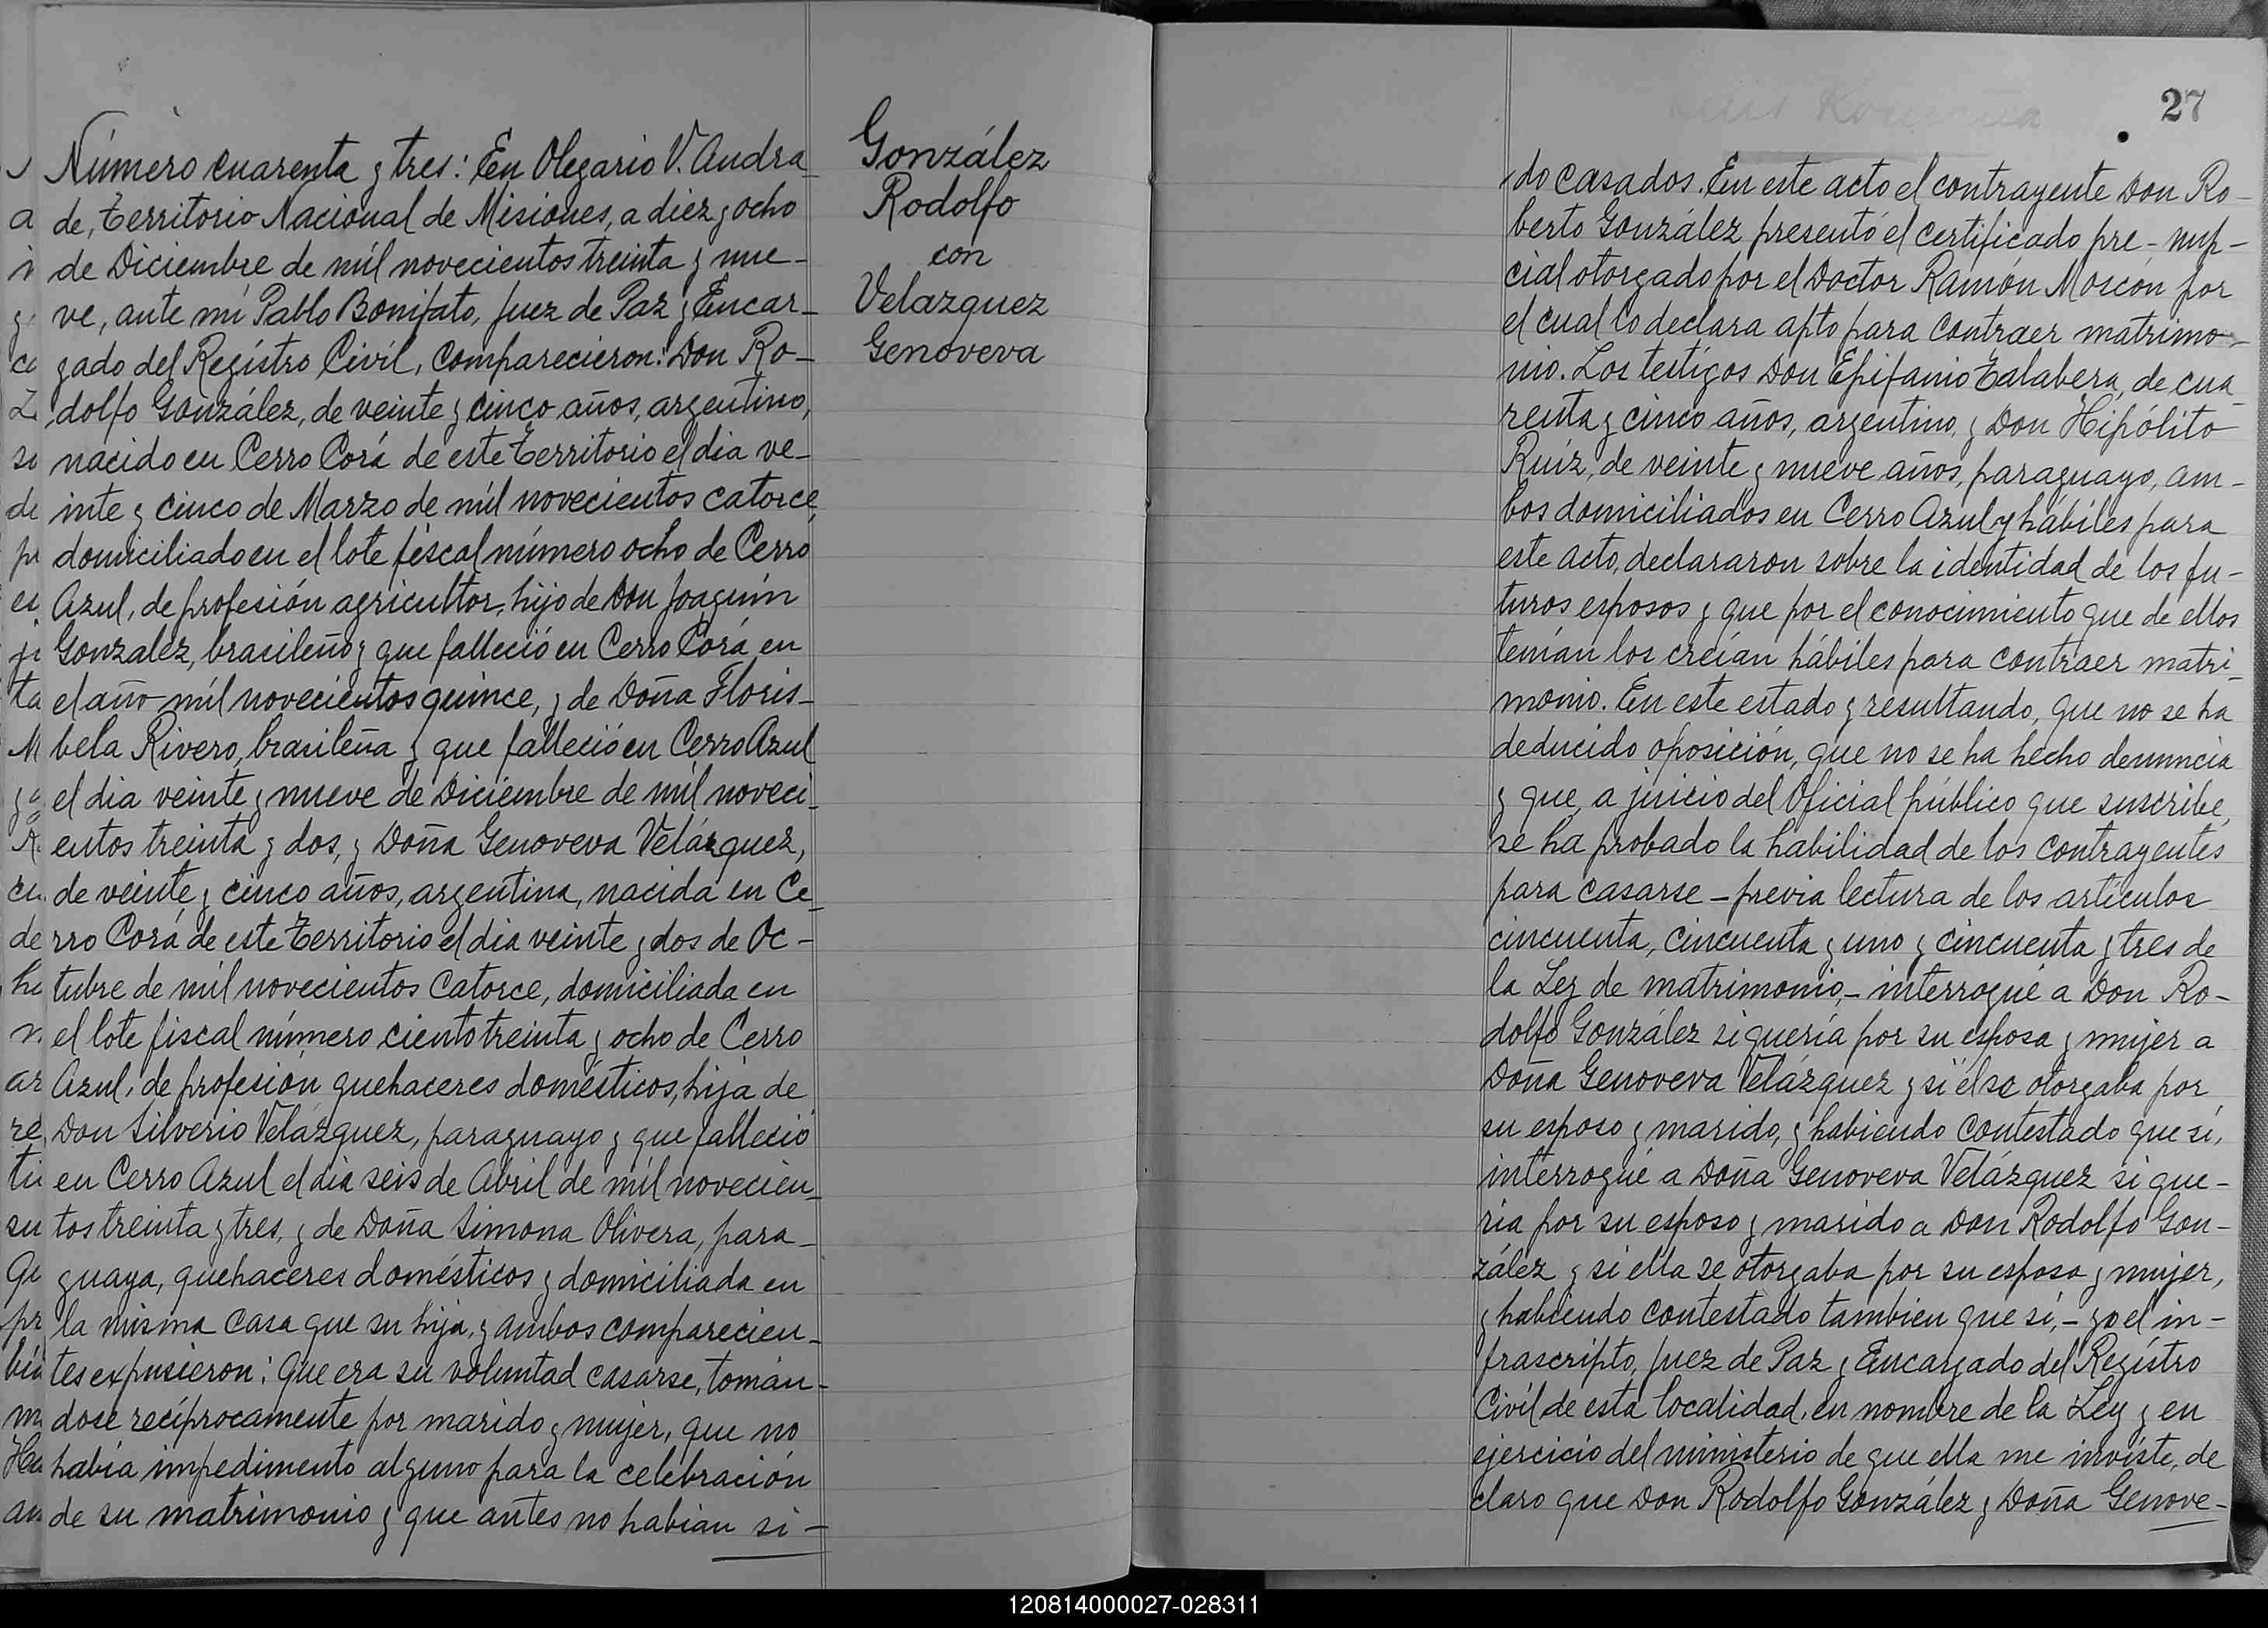 Número cuarenta y tres: En Olegario V. Andra_
de, Territorio Nacional de Misiones, a diez y ocho
de Diciembre de mil novecientos treinta y nue_
ve, ante mi Pablo Bonifato, Juez de Paz y Encar_
gado del Registro Civil, comparecieron: Don Ro_
dolfo González, de veinte y cinco años, argentino,
nacido en Cerro Corá de este Territorio el dia ve_
inte y cinco de Marzo de mil novecientos catorce,
domiciliado en el lote fiscal número ocho de Cerro
Azul, de profesión agricultor, hijo de Don Joaquin
Gonzalez, brasileño y que falleció en Cerro Corá en
el año mil novecientos quince, y de Doña Floris_
bela Rivero, brasileña y que falleció en Cerro Azul
el dia veinte y nueve de Diciembre de mil noveci_
entos treinta y dos, y Doña Genoveva Velázquez,
de veinte y cinco años, argentina, nacida en Ce_
rro Corá de este Territorio el dia veinte y dos de Oc_
tubre de mil novecientos catorce, domiciliada en
el lote fiscal número ciento treinta y ocho de Cerro
Azul, de profesión quehaceres domésticos, hija de
Don Silverio Velázquez, paraguayo y que falleció
en Cerro Azul el dia seis de Abril de mil novecien_
tos treinta y tres, y de Doña Simona Olivera, para_
guaya, quehaceres domésticos y domiciliada en
la misma casa que su hija, y ambos comparecien_
tes expusieron: Que era su voluntad casarse, tomán_
dose recíprocamente por marido y mujer, que no
había impedimento alguno para la celebración
de su matrimonio y que antes no habian si_
González
Rodolfo
con
Velazquez
Genoveva
27
do casados. En este acto el contrayente Don Ro_
berto González presentó el certificado pre-nup_
cial otorgado por el Doctor Ramón Moscón por
el cual lo declara apto para contraer matrimo_
nio. Los testigos Don Epifanio Talabera, de cua_
renta y cinco años, argentino, y Don Hipólito
Ruiz, de veinte y nueve años, paraguayo, am_
bos domiciliados en Cerro Azul y hábiles para
este acto, declararon sobre la identidad de los fu_
turos esposos y que por el conocimiento que de ellos
tenían los creían hábiles para contraer matri_
monio. En este estado y resultando, que no se ha
deducido oposición, que no se ha hecho denuncia
y que, a juicio del Oficial público que suscribe,
se ha probado la habilidad de los contrayentes
para casarse – previa lectura de los artículos
cincuenta, cincuenta y uno y cincuenta y tres de
la Ley de matrimonio, – interrogué a Don Ro_
dolfo González si quería por su esposa y mujer a
Doña Genoveva Velázquez y si él se otorgaba por
su esposo y marido, y habiendo contestado que sí,
interrogué a Doña Genoveva Velázquez si que_
ria por su esposo y marido a Don Rodolfo Gon_
zález y si ella se otorgaba por su esposa y mujer,
y habiendo contestado tambien que sí, – yo el in_
frascripto, Juez de Paz y Encargado del Registro
Civil de esta localidad, en nombre de la Ley y en
ejercicio del ministerio de que ella me inviste, de
claro que Don Rodolfo González y Doña Genove_
120814000027-028311